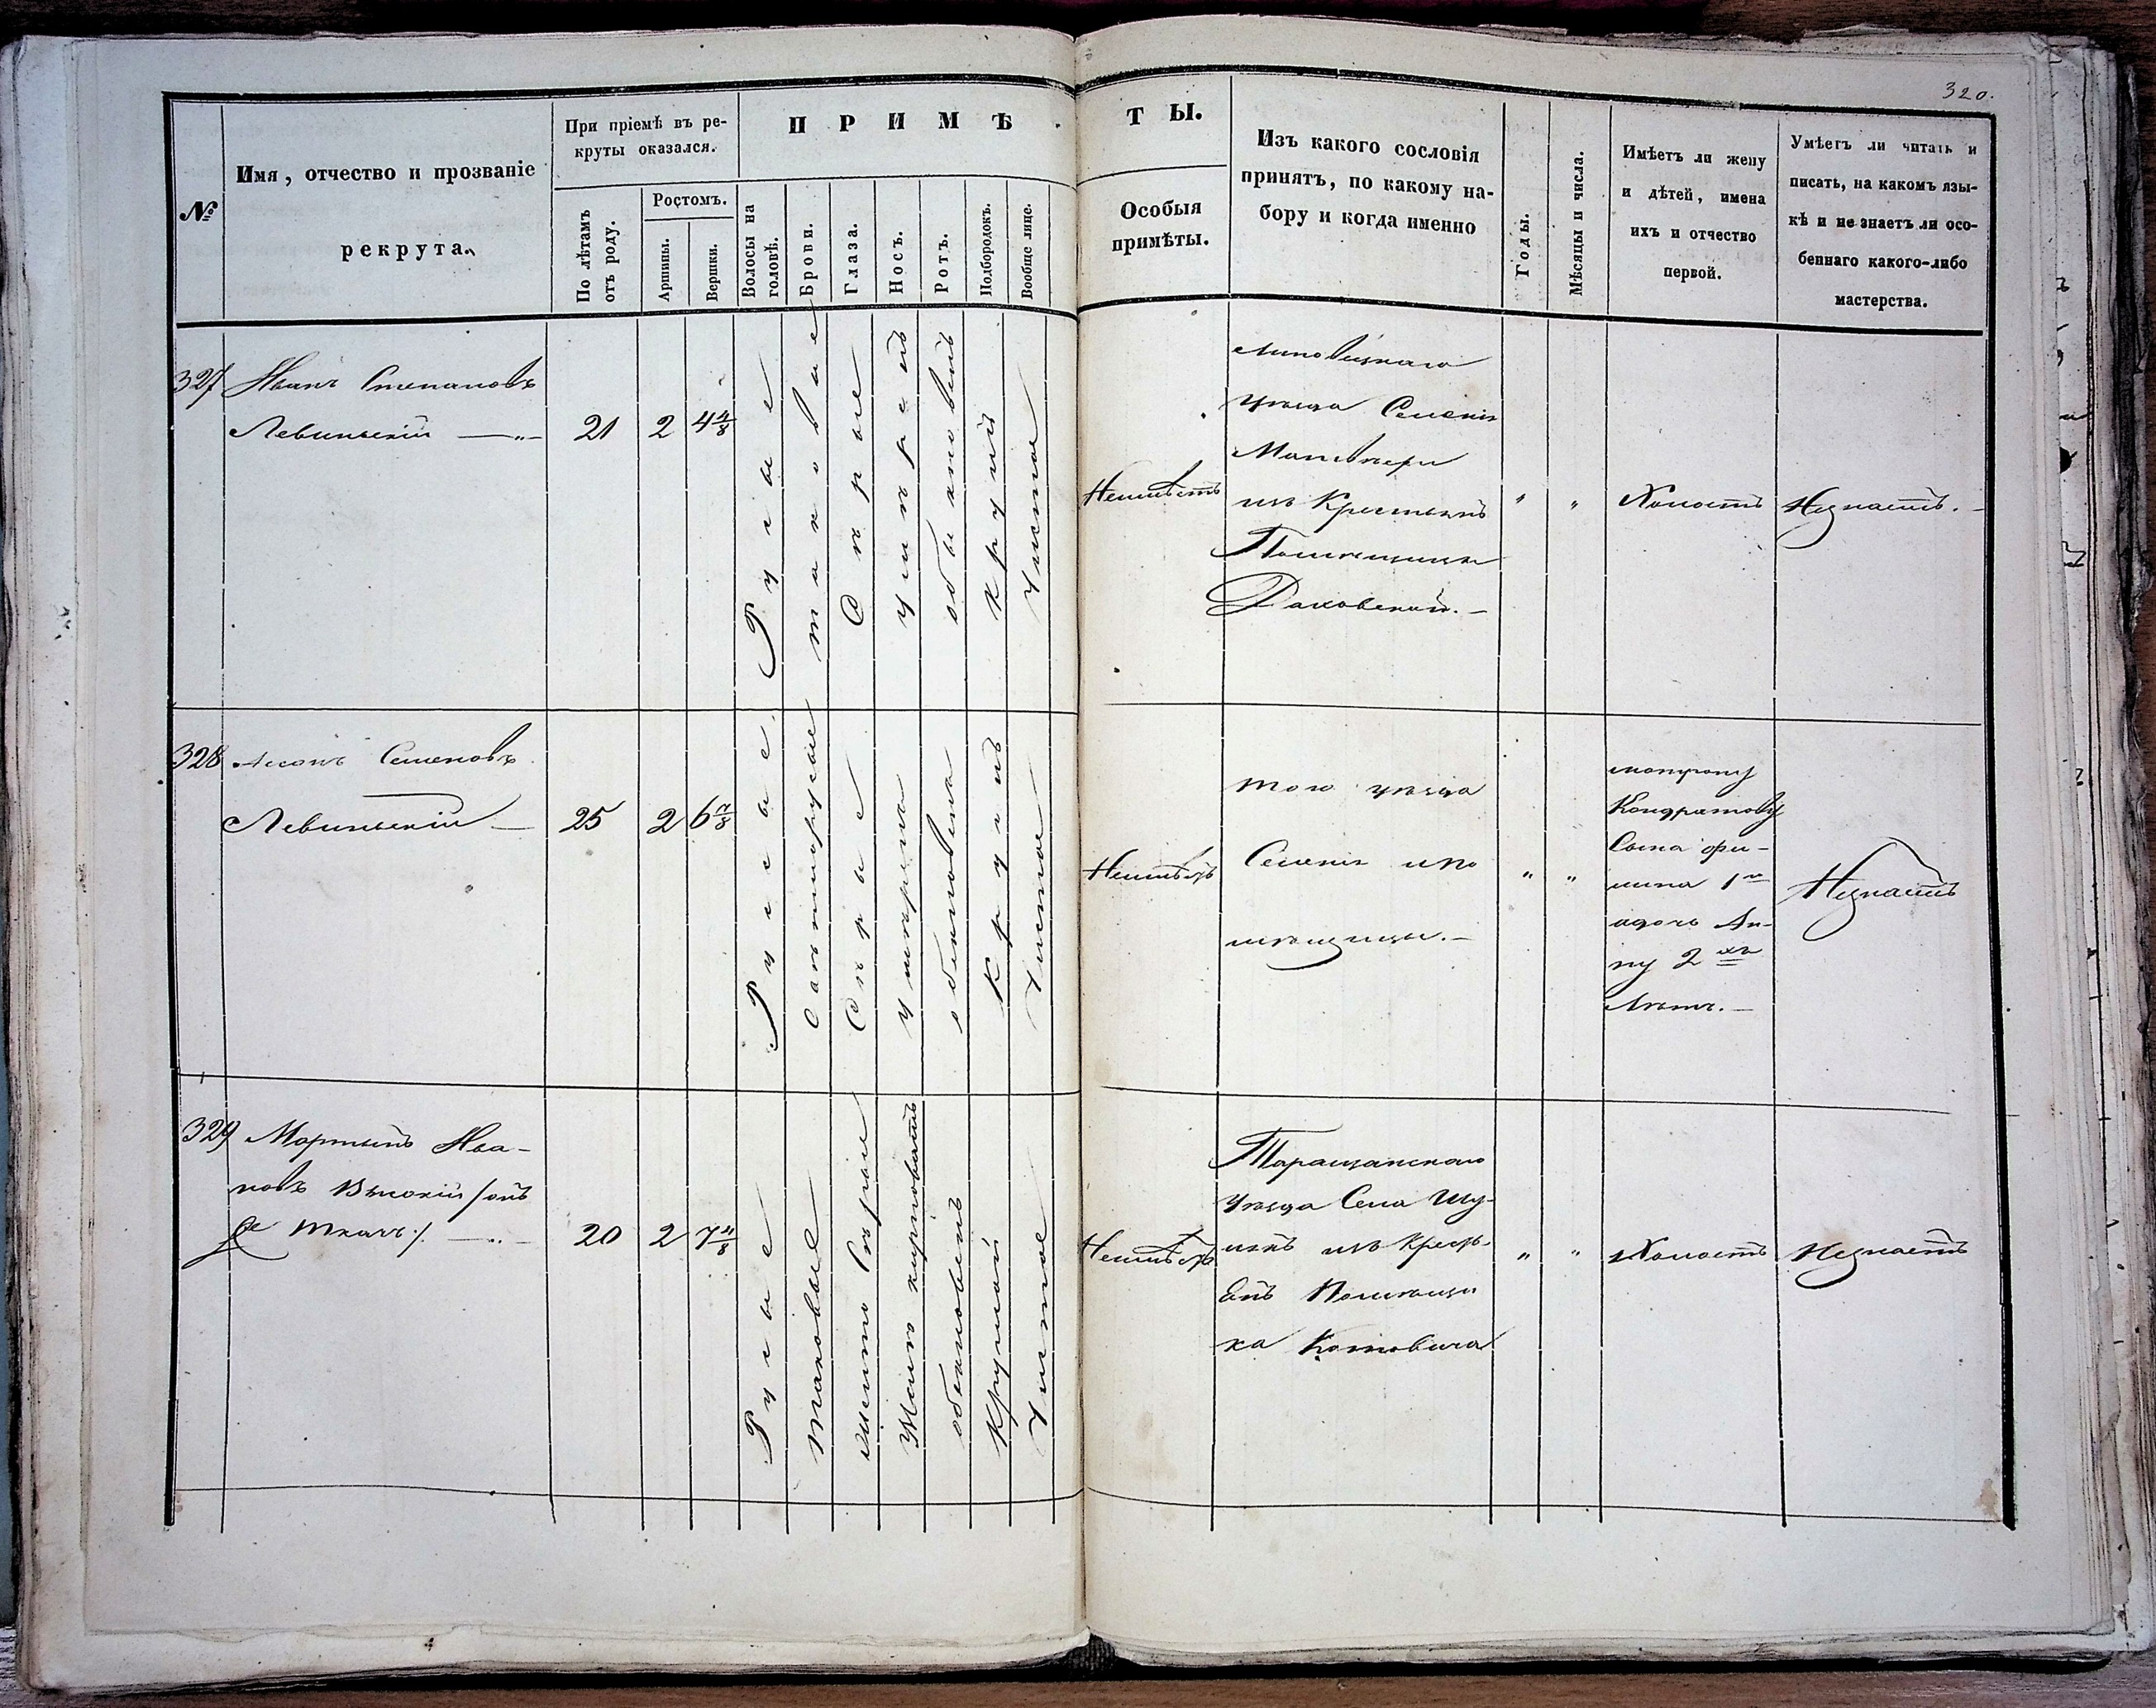 320.
№
Имя, отчество и прозваніе
рекрута.
При пріемѣ въ ре-
круты оказался.
По лѣтамъ
отъ роду.
Ростомъ.
Аршины.
Вершки.
ПРИМѢ
ТЫ.
Волосы на
головѣ.
Брови.
Глаза.
Носъ.
Ротъ.
Подбородокъ.
Вообще лице.
Особыя
примѣты.
Изъ какого сословія
принятъ, по какому на-
бору и когда именно
Годы.
Мѣсяцы и числа.
Имѣетъ ли жену
и дѣтей, имена
ихъ и отчество
первой.
Умѣетъ ли читать и
писать, на какомъ язы-
кѣ и не знаетъ ли осо-
беннаго какого-либо
мастерства.
327
Иванъ Степановъ
Левинскій
21
2
4 4/8
Русые
таковые
Сѣрые
умѣренъ
обыкновенъ
круглый
Чистое
Неимѣетъ
Липовецкаго
уѣзда Селенія
изъ Крестьянъ
Помѣщицы
"
"
Холостъ
Незнаетъ.
328
Семеновъ
Левинскій
25
2
Русые
Свѣтлорусые
Сѣрые
умѣренъ
обыкновенъ
Круглъ
Чистое
Неимѣетъ
того уѣзда
Селенія и по
мѣщицы.
"
"
Кондратову
Сына Фи-
липа 1
идочь Ан-
ну 2хъ
лѣтъ.
Незнаетъ
329
Мартынъ Ива-
новъ Высокій /онъ
же Ткачъ/.
20
2
7 4/8
Русые
таковые
Свѣтло сѣрые
обыкновенъ
Круглый
Чистое
Неимѣетъ
Таращанскаго
уѣзда Села Шу-
изъ Кресть-
янъ Помѣщи
ка Котовича
"
"
Холостъ
Незнаетъ